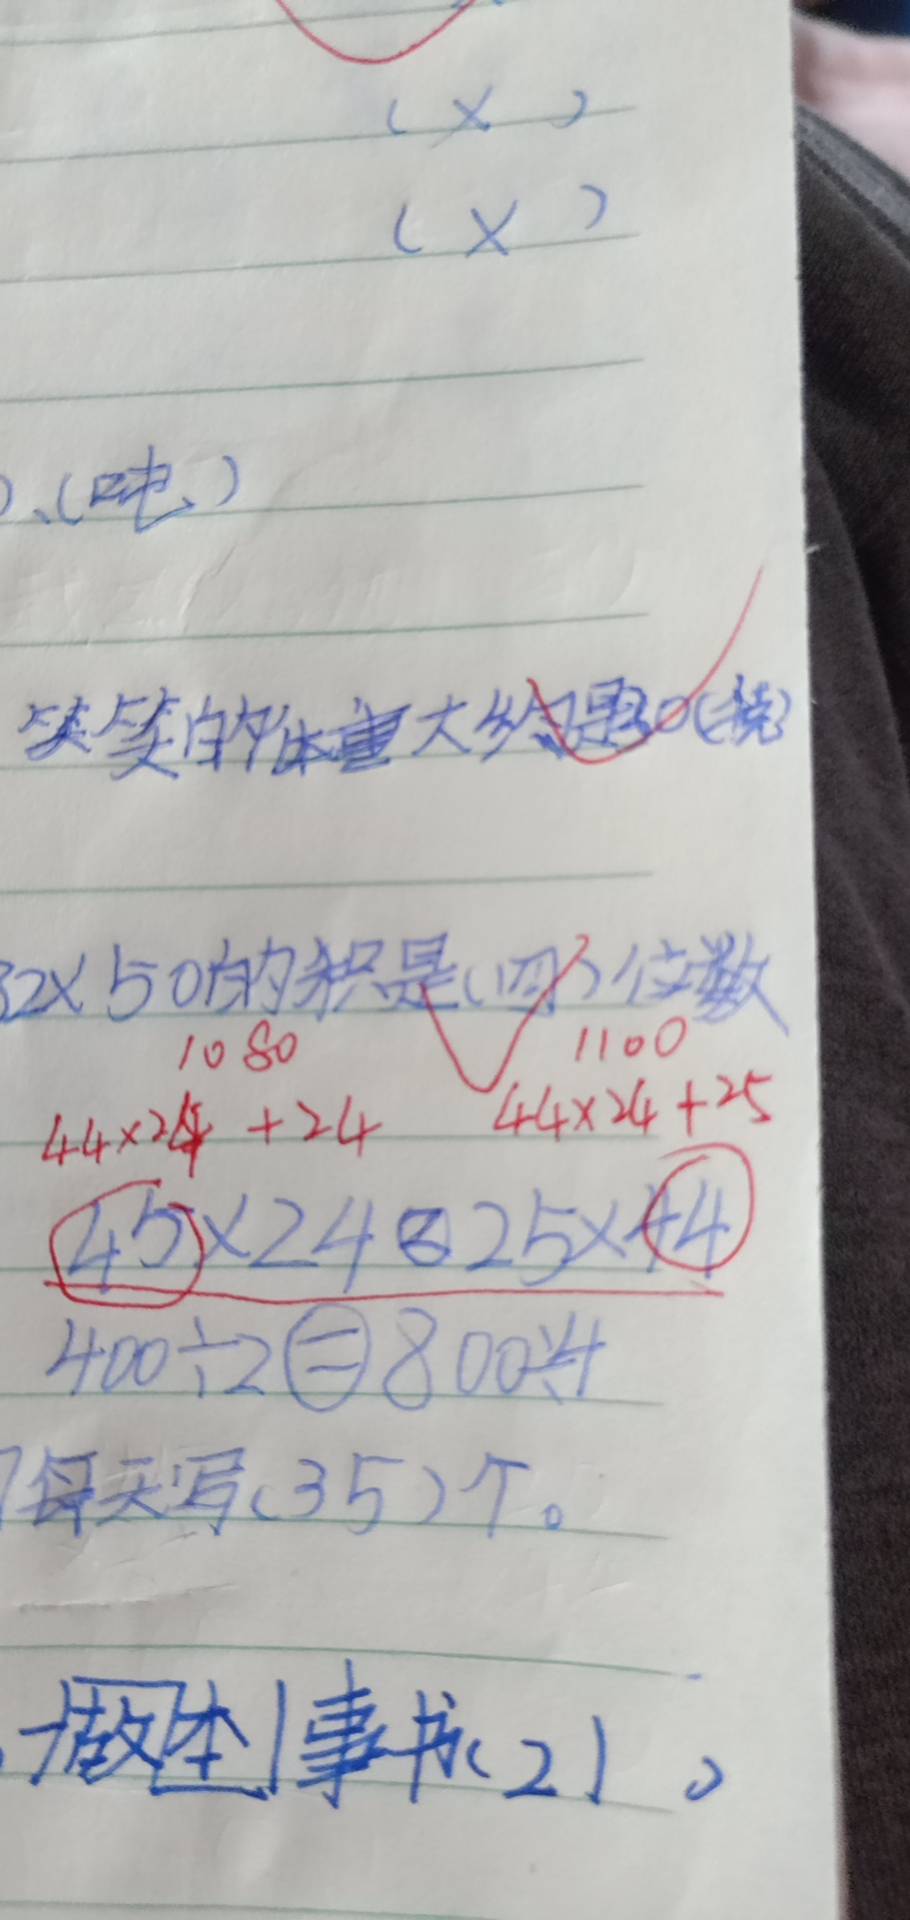 ( × )
( × )
)、(吨)
笑笑的体重大约是30(千克)
32×50的积是(四)位数
1080 1100
44×24 +24 44×24+25
45×24 25×44
400÷2=800÷4
每天写(35)个。
事书(2)。